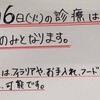 6日(火)の診療は
のみとなります。
はフィラリアや、お手入れ、フード
可能です。